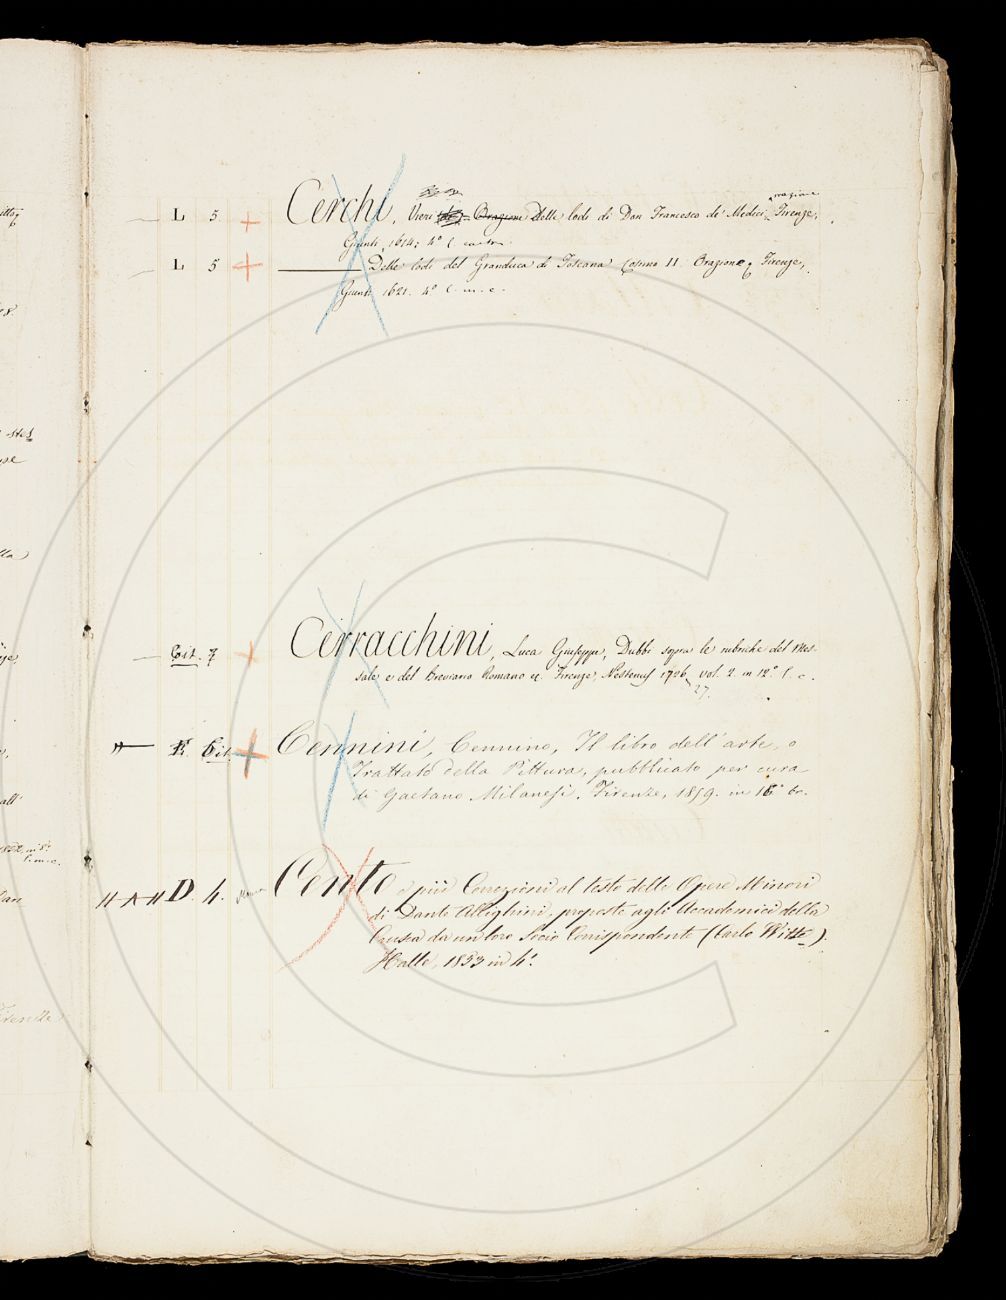 orazione
L 5 Cerchi, Vieri Orazione Delle lodi di Don Francesco de' Medici, Firenze,
Giunti, 1614; 4º
L 5 Delle lodi del Granduca di Toscana Cosimo II. Orazione, Firenze,
Giunti 1621. 4º l. m. c.
Cit. 7 Cerracchini, Luca Giuseppe, Dubbi sopra le rubriche del Mes-
sale e del Breviario Romano ec. Firenze, Nestenus 1726, vol. 2. in 12º l. c.
27.
Cit. Cennini, Cennino, Il libro dell'arte, o
Trattato della Pittura, pubblicato per cura
di Gaetano Milanesi. Firenze, 1859. in 16º
D. 4. Cento e più Correzioni al testo delle Opere Minori
di Dante Allighieri, proposte agli Accademici della
Crusca da un loro Socio Corrispondente (Carlo Witte).
Halle, 1853 in 4º.